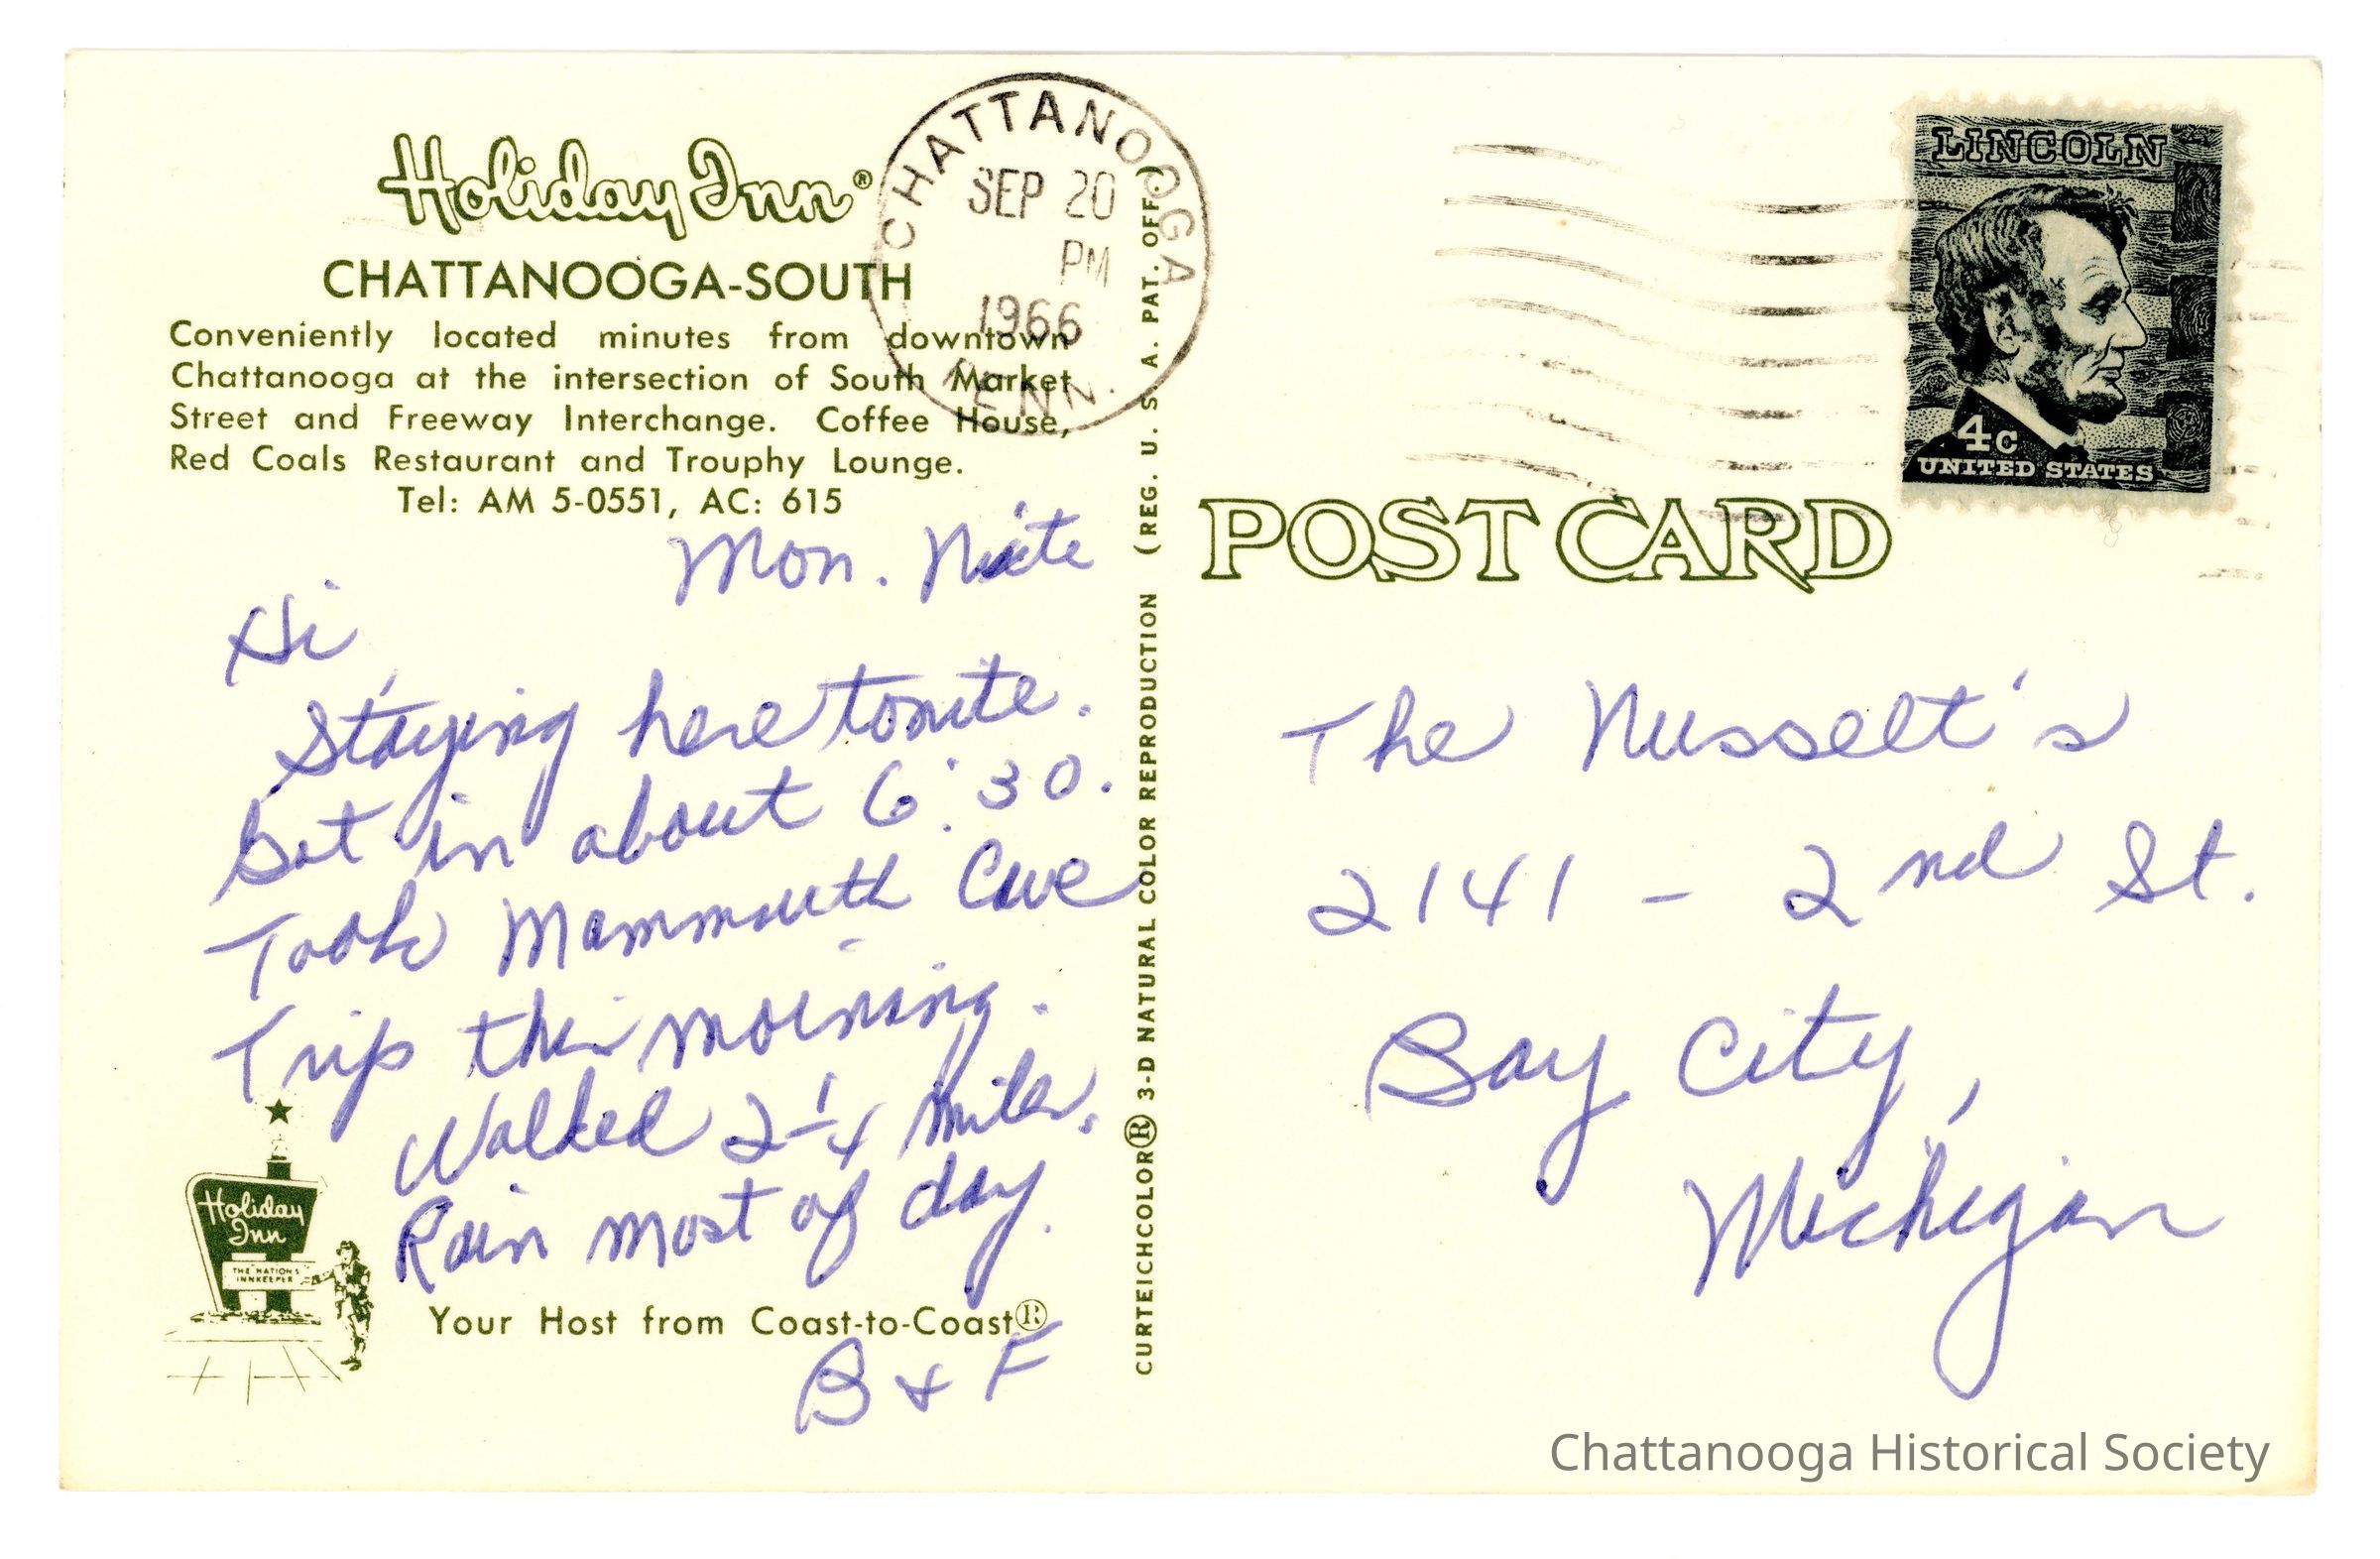 Holiday Inn®
CHATTANOOGA-SOUTH
Conveniently located minutes from downtown
Chattanooga at the intersection of South Market
Street and Freeway Interchange. Coffee House,
Red Coals Restaurant and Trouphy Lounge.
Tel: AM 5-0551, AC: 615
CHATTANOOGA
SEP 20
PM
1966
TENN.
Mon. Nite
Hi
Staying here tonite.
Got in about 6:30.
Took Mammouth Cave
Trip this morning.
Walked 2 1/4 miles.
Rain most of day.
Holiday
Inn
THE NATION'S
INNKEEPER
Your Host from Coast-to-Coast®
B & F
CURTEICHCOLOR® 3-D NATURAL COLOR REPRODUCTION (REG. U. S. A. PAT. OFF.)
LINCOLN
4c
UNITED STATES
POST CARD
The Nusselt's
2141 - 2nd St.
Bay City,
Michigan
Chattanooga Historical Society